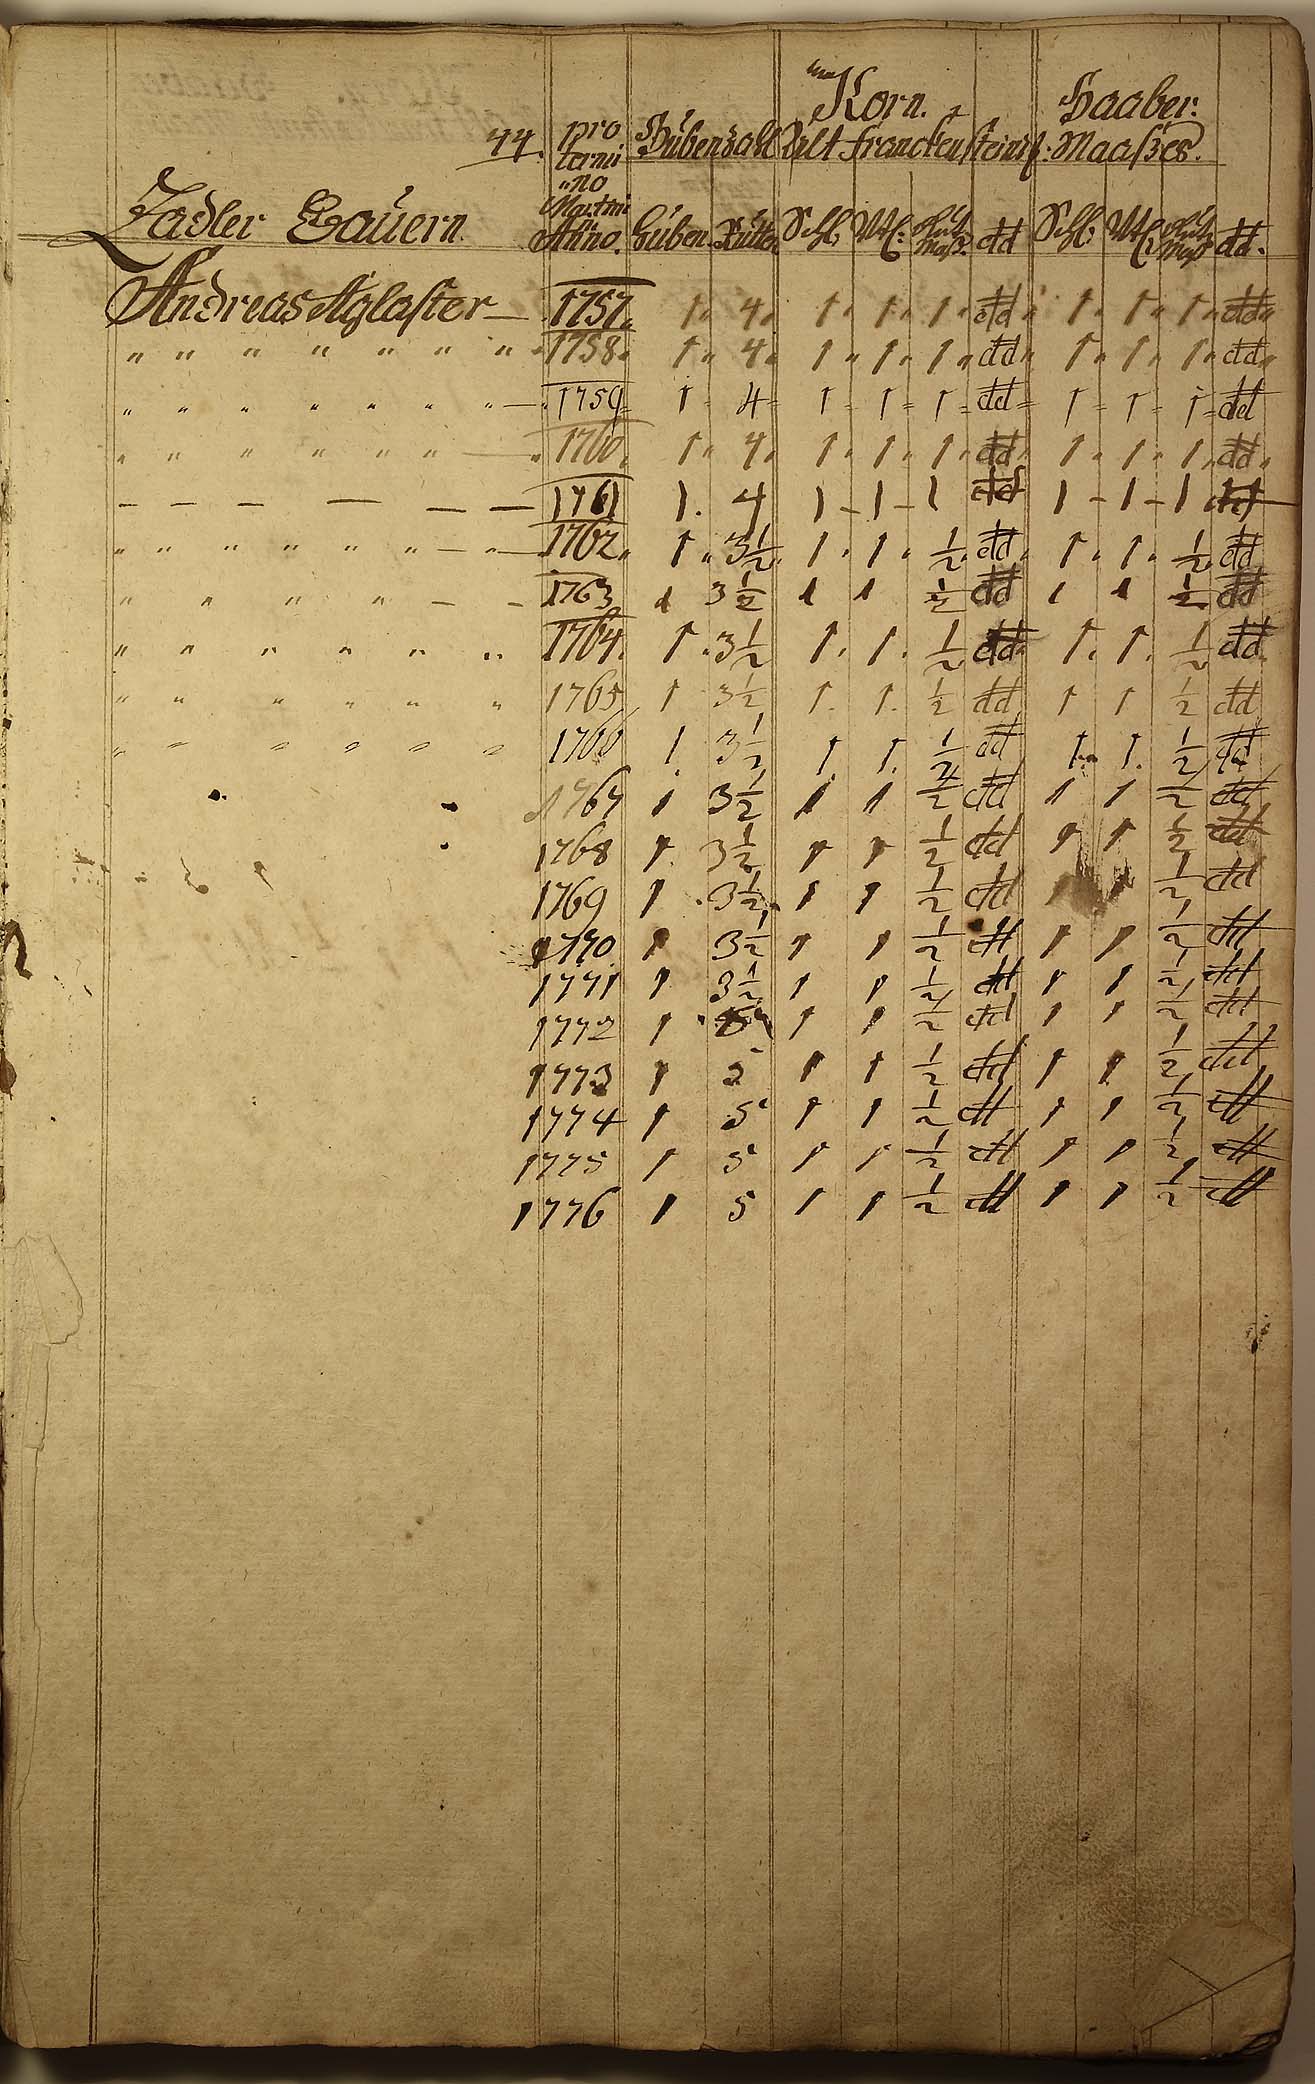 Korn. Haaber.
44. pro Hubenzahl Alt Franckensteinis. Maaßes.
termi
"no
Martini
Zadler Bauern. Anno. Huben. Rutten Schl: Mtl: Maß. dd Schl: Mtl: Maß dd.
Andreas Aglaster — 1757. 1. 4. 1. 1. 1. dd 1. 1. 1. dd
" " " " " " " 1758. 1. 4. 1. 1. 1. dd 1. 1. 1. dd
" " " " " " " — 1759 1 4 1 1 1 dd 1 1 1 dd
" " " " " " — 1760. 1. 4. 1. 1. 1. dd 1. 1. 1. dd
— — — — — — 1761 1. 4 1 - 1 - 1 dd 1 - 1 - 1 dd
" " " " " " — " — 1762. 1. 3 1/2 1. 1. 1/2 dd 1. 1. 1/2 dd
" " " " — — 1763 1 3 1/2 1 1 1/2 dd 1 1 1/2 dd
" " " " " " 1764. 1. 3 1/2 1. 1. 1/2 dd 1. 1. 1/2 dd
" " " " " " 1765 1 3 1/2 1. 1. 1/2 dd 1 1 1/2 dd
" " " " " " 1766 1. 3 1/2 1. 1. 1/2 dd 1. 1. 1/2 dd
1767 1 3 1/2 1 1 1/2 dd 1 1 1/2 dd
1768 1. 3 1/2 1 1 1/2 dd 1 1 1/2 dd
1769 1 3 1/2 1 1 1/2 dd 1 1 1/2 dd
1770 1 3 1/2 1 1 1/2 dd 1 1 1/2 dd
1771 1 3 1/2 1 1 1/2 dd 1 1 1/2 dd
1772 1 1 1 1/2 dd 1 1 1/2 dd
1773 1 5 1 1 1/2 dd 1 1 1/2 dd
1774 1 5 1 1 1/2 dd 1 1 1/2 dd
1775 1 5 1 1 1/2 dd 1 1 1/2 dd
1776 1 5 1 1 1/2 dd 1 1 1/2 dd